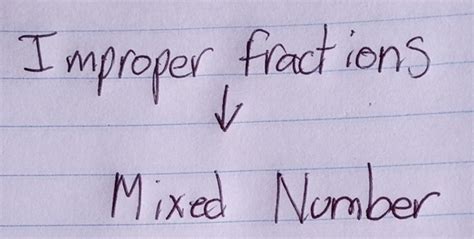 Improper fractions
↓
Mixed Number